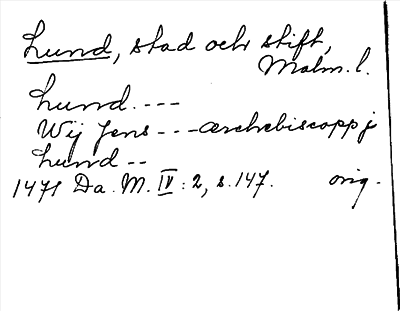 Lund, stad och stift,
Malm. l.
Lund. ---
Wij Jens --- ærchebiscopp j
Lund --
1471 Da. M. IV: 2, s. 147. orig.